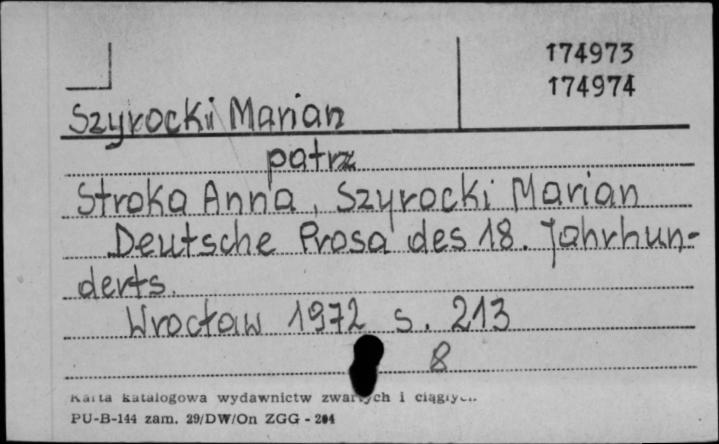 174973
174974
Szyrocki Marian
patrz
Stroka Anna, Szyrocki Marian
Deutsche Prosa des 18. Jahrhun-
derts.
Wrocław 1972 s. 213
8
Karta katalogowa wydawnictw zwartych i ciągłych
PU-B-144 zam. 29/DW/On ZGG - 204